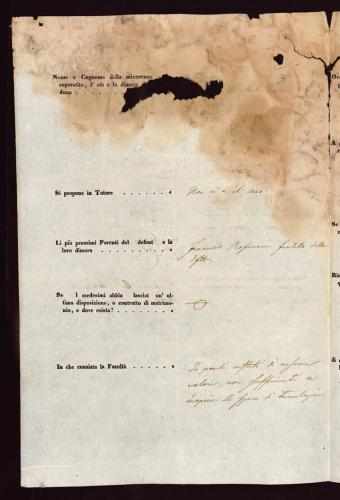 Nome e Cognome della minorenne
superstite, l' età e la dimora
duna
Si propone in Tutore Non v'è il caso
Li più prossimi Parenti del defont e la
loro dimora
Francesco fratello della
Se i medesimi abbia lasciat un' ul-
tima disposizione, o contratto di matrimo-
nio, e dove esista?
In che consista la Facoltà
In pochi effetti di nessun
valore, non sufficienti a
le spese di tumulazione